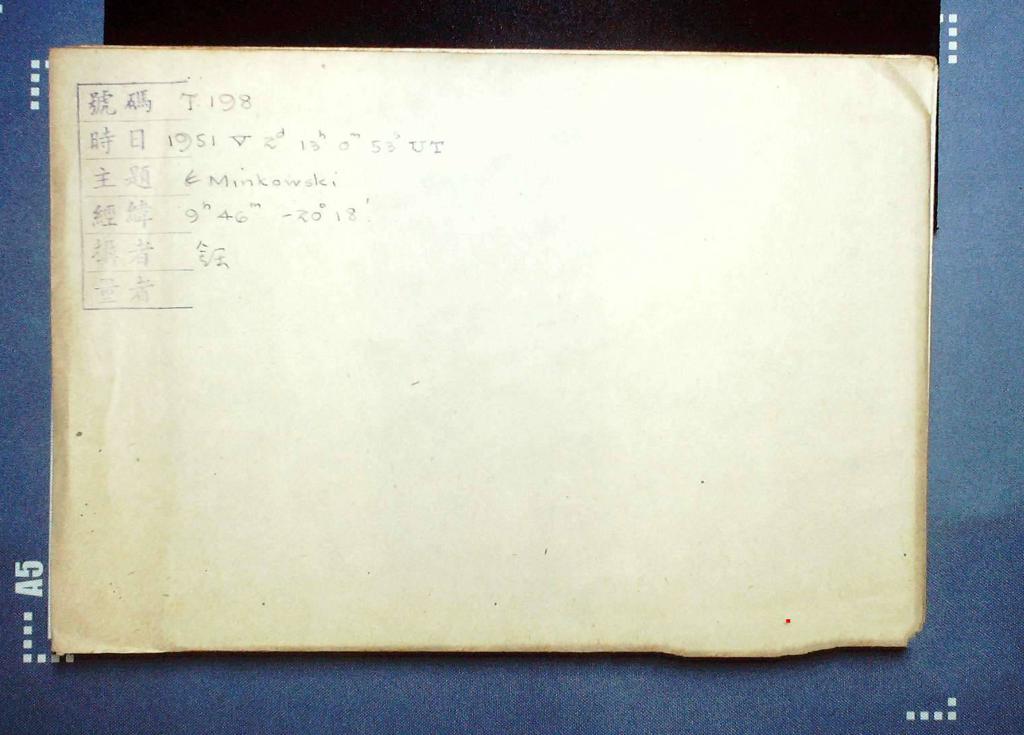 號碼 T. 198
時日 1951 V 2ᵈ 13ʰ 0ᵐ 53ˢ UT
主題 Minkowski
經緯 9ʰ 46ᵐ -20° 18'
攝者
量者
A5